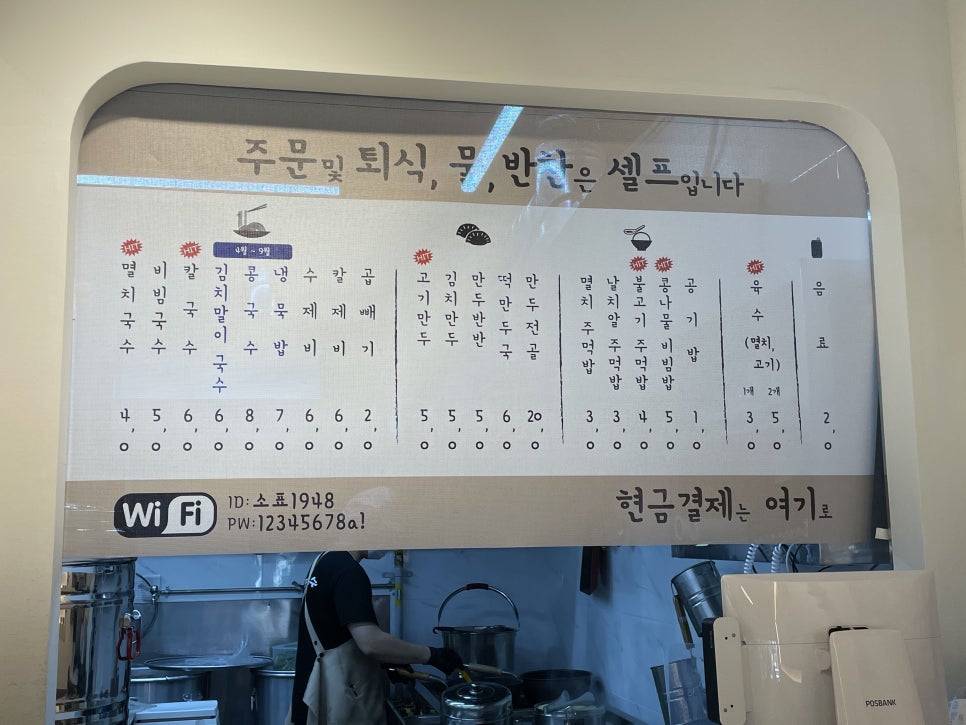 주문및 퇴식, 물, 반찬은 셀프입니다
HIT
HIT
4월 ~ 9월
HIT
HIT
HIT
HIT
멸치국수 4,0
비빔국수 5,0
칼국수 6,0
김치말이국수 6,0
콩국수 8,0
냉묵밥 7,0
수제비 6,0
칼제비 6,0
곱빼기 2,0
고기만두 5,0
김치만두 5,0
만두반반 5,0
떡만두국 6,0
만두전골 20,0
멸치 주먹밥 3,0
날치알 주먹밥 3,0
불고기 주먹밥 4,0
콩나물 비빔밥 5,0
공기밥 1,0
육수
(멸치,
고기)
1개 2개
3,0 5,0
음료 2,0
WiFi
ID: 소표1948
PW: 12345678a!
현금결제는 여기로
POSBANK